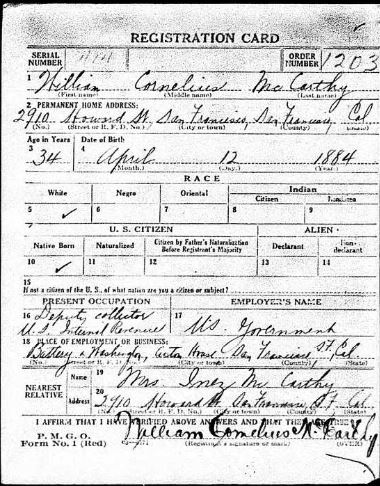 REGISTRATION CARD
SERIAL NUMBER ORDER NUMBER 1203
1 William Cornelius McCarthy
(First name) (Middle name) (Last name)
2 PERMANENT HOME ADDRESS:
2910 Howard St. San Francisco, San Francisco, Cal.
(No.) (Street or R. F. D. No.) (City or town) (County) (State)
Age in Years Date of Birth
3 34 4 April 12 1884
(Month.) (Day.) (Year.)
RACE
White Negro Oriental Indian
Citizen Noncitizen
5 ✓ 6 7 8 9
U. S. CITIZEN ALIEN
Native Born Naturalized Citizen by Father's Naturalization Before Registrant's Majority Declarant Non-declarant
10 ✓ 11 12 13 14
15
If not a citizen of the U. S., of what nation are you a citizen or subject?
PRESENT OCCUPATION EMPLOYER'S NAME
16 Deputy collector 17
U.S. Internal Revenue U.S. Government
18 PLACE OF EMPLOYMENT OR BUSINESS:
Battery & Washington, House. San Francisco, S.F. Cal.
(No.) (Street or R. F. D. No.) (City or town) (County) (State)
NEAREST RELATIVE Name 19 Mrs. Inez McCarthy
Address 20 2910 Howard St San Francisco S.F. Cal.
(No.) (Street or R. F. D. No.) (City or town) (County) (State)
I AFFIRM THAT I HAVE VERIFIED ABOVE ANSWERS AND THAT THEY ARE TRUE
P. M. G. O.
Form No. 1 (Red) William Cornelius McCarthy
(Registrant's signature or mark) (OVER)